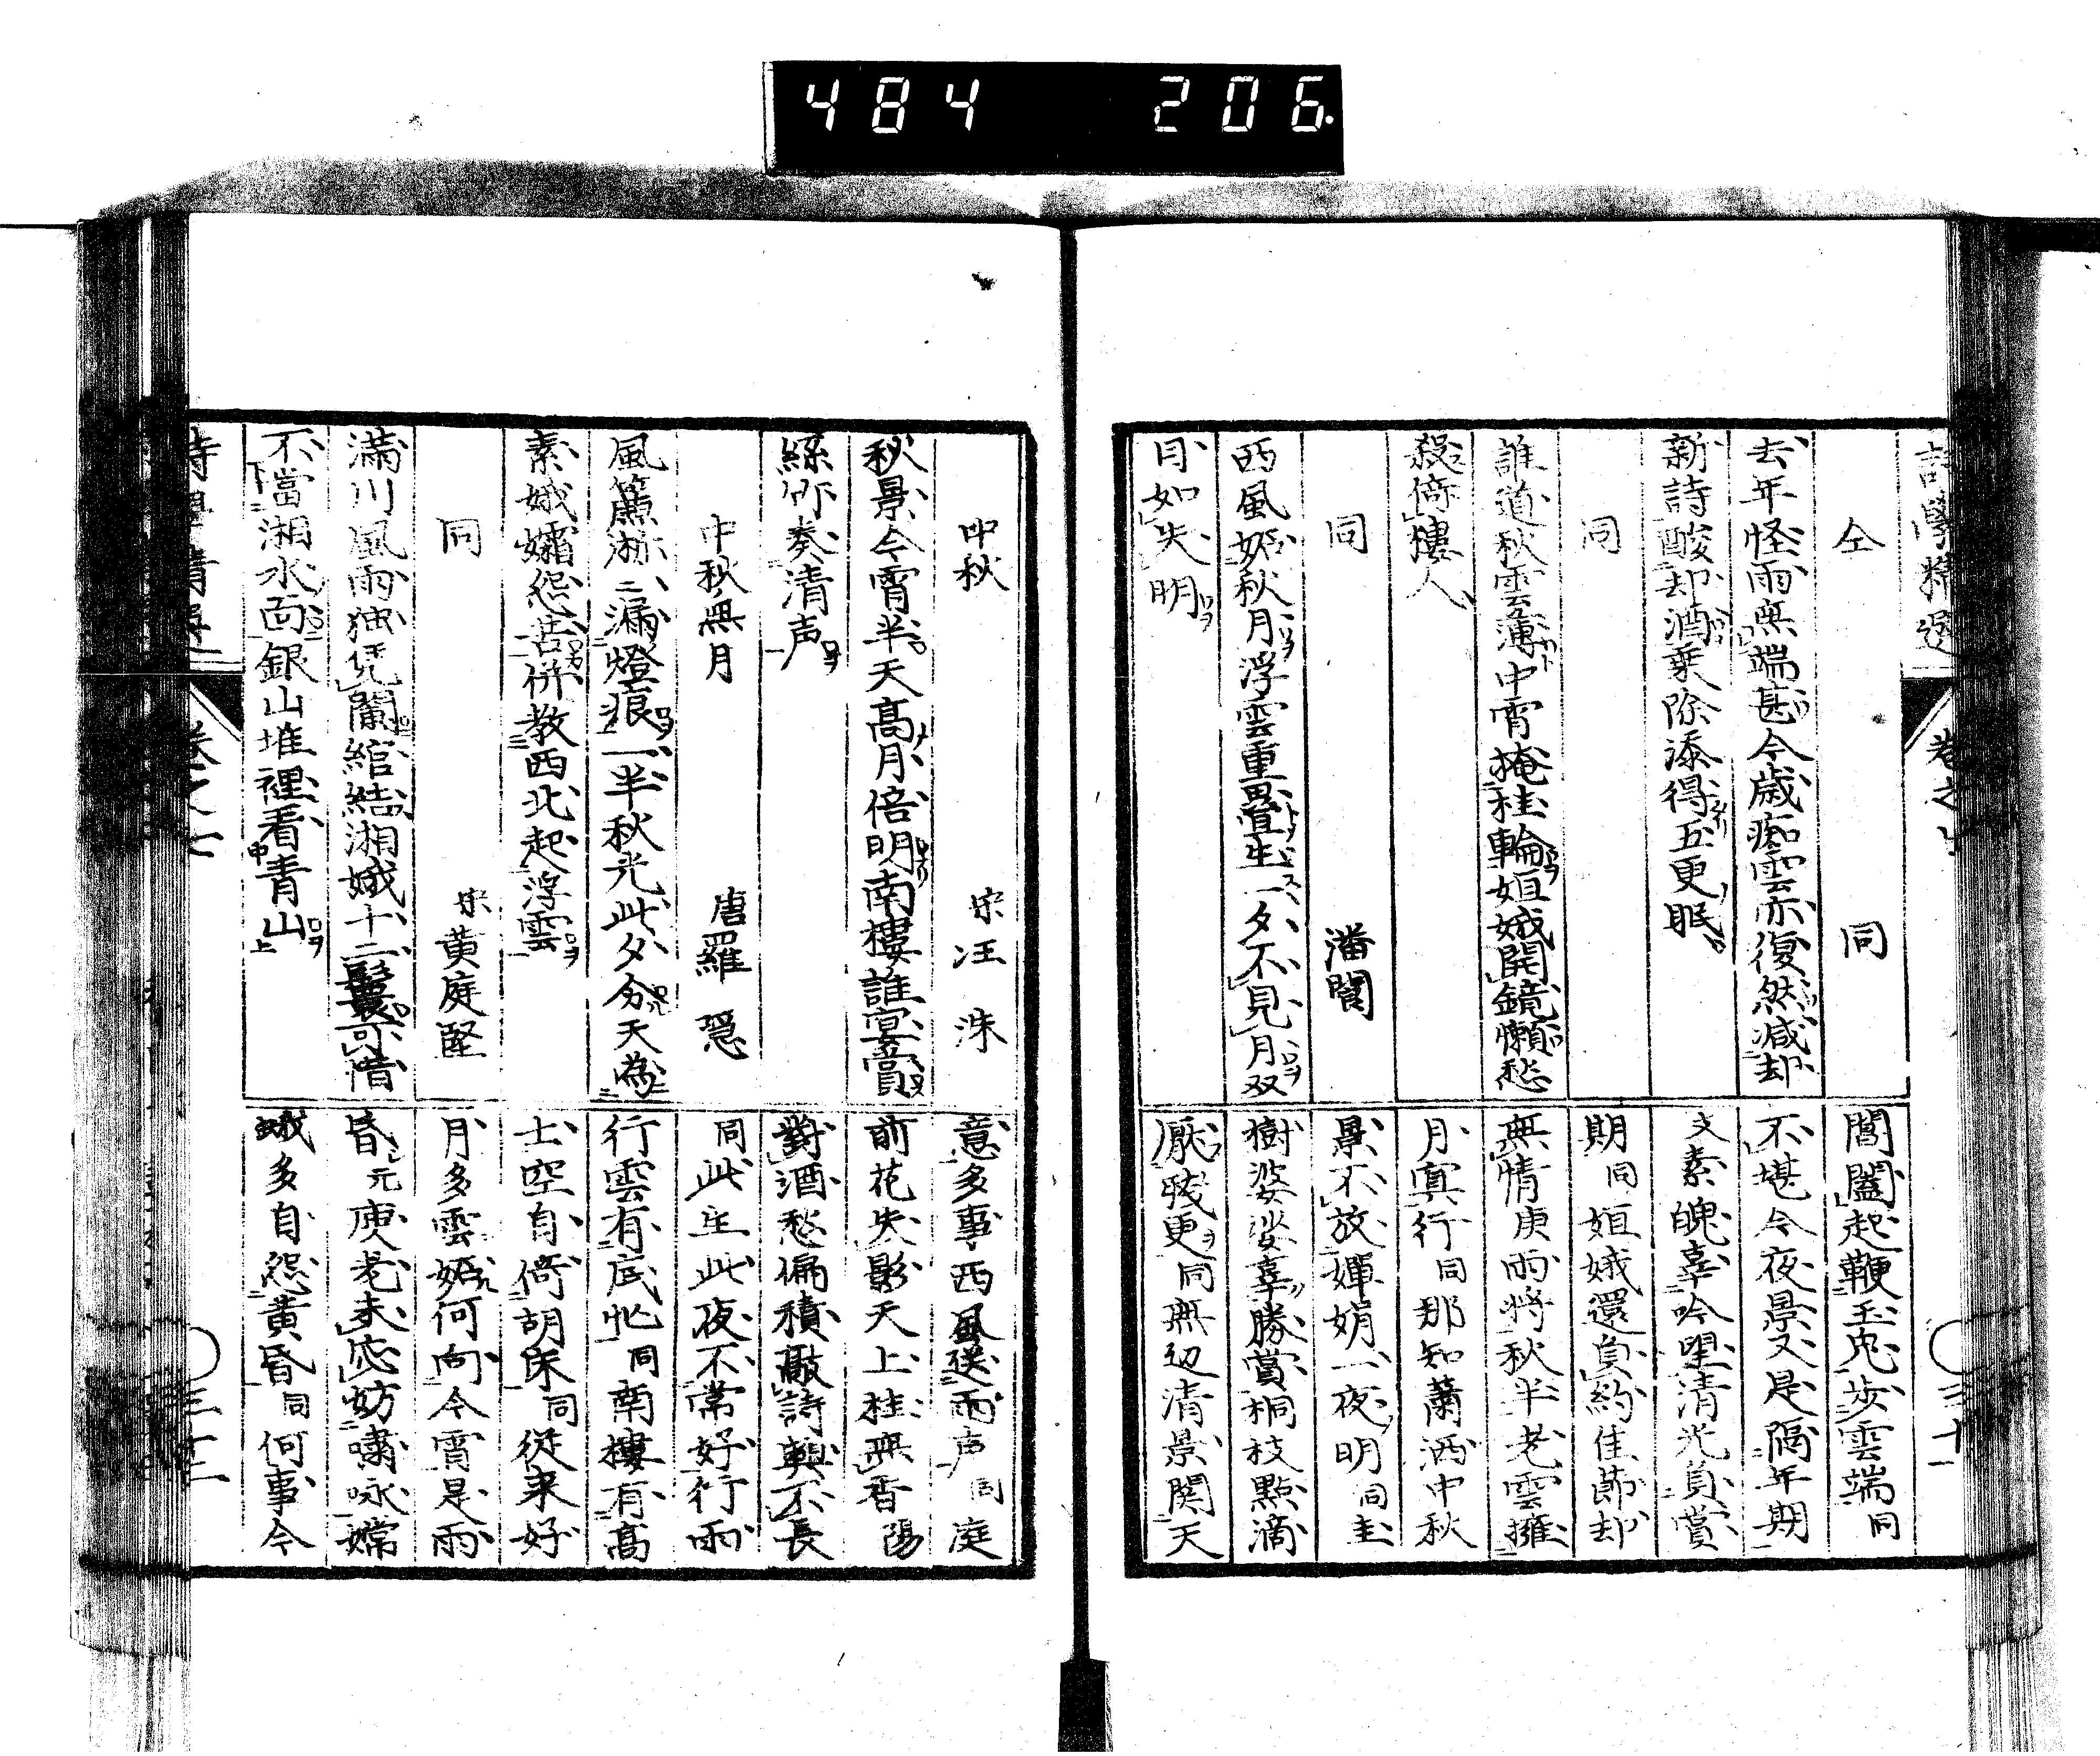 484 206
詩學精選
卷之七
三十一
仝 同
去年怪雨無端甚今歳痴雲亦復然減却
新詩酸却酒乗除添得五更眠
同
誰道秋雲薄中宵掩桂輪姮娥開鏡懶愁
殺倚樓人
同 潘閬
西風妬秋月浮雲重疊生一夕不見月双
目如失明
閶闔起鞭玉兔歩雲端同
不堪今夜景又是隔年期
文素魄辜吟望清光負賞
期同姮娥還負約佳節却
無情庚雨将秋半老雲擁
月寞行同那知蕭洒中秋
景不放嬋娟一夜明同圭
樹婆娑辜勝賞桐枝點滴
厭残更同無辺清景関天
中秋 宋汪洙
秋景今宵半天高月倍明南樓誰宴賞
絲竹奏清声
中秋無月 唐羅隱
風簾淅二漏燈痕一半秋光此夕分天為
素娥孀怨苦併教西北起浮雲
同 宋黄庭堅
満川風雨独凭闌綰結湘娥十二鬟可惜
不當湘水面銀山堆裡看青山
意多事西風送雨声同庭
前花失影天上桂無香陽
對酒愁偏積敲詩興不長
同此生此夜不常好行雨
行雲有底忙同南樓有高
士空自倚胡床同從来好
月多雲妬何向今宵是雨
昏元庾老未応妨嘯咏嫦
娥多自怨黄昏同何事今
卷之七
三十二